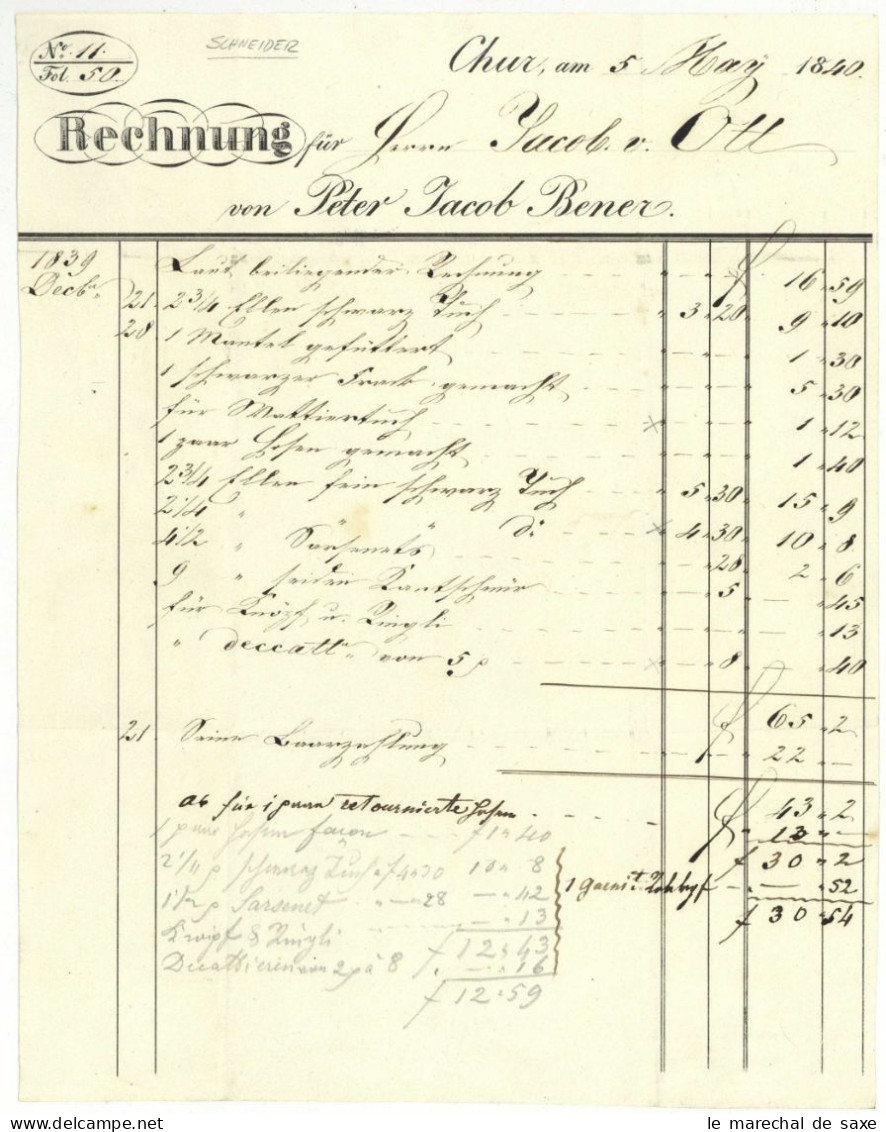 No. 11.
Fol. 50.
SCHNEIDER
Chur, am 5 May 1840.
Rechnung für Herrn Jacob v. Ott
von Peter Jacob Bener.
1839 Laut beiliegender Rechnung - - - f 16 " 59
Decbr. 21. 2 3/4 Ellen schwarz Tuch - - " 3 " 20 " 9 " 10
28 1 Mantel gefüttert - - - 1 " 30
1 schwarzer Frack gemacht - - - 5 " 30
für Wattiertuch - - - x 1 " 12
1 paar Hosen gemacht - - - 1 " 40
2 3/4 Ellen fein schwarz Tuch - - " 5 " 30 " 15 " 9
2 1/4 " " " do - x 4 " 30 10 " 8
4 1/2 " Sarsenets - - - " 28 2 " 6
9 " seiden - - - " 5 " 45
für Knöpf u. Ringli - - - " 13
" deccatt. von 5 p - - - x " 8 " " 40
f 65 " 2
21. Seine Baarzahlung - - - " 22 " —
f 43 " 2
ab für 1 paar retournierte Hosen - - - " 13 " -
f 30 " 2
1 paar Hosen façon - - - f 1 " 40
2 1/4 p schwarz Tuch a f 4 " 30 10 " 8
1 1/2 p Sarsenet " — " 28 — " 42
Knöpf & Ringli - - - — " 13
f 12 " 43
Decattieren von 2 p à 8 " — " 16
f 12 " 59
1 Garnit. - " — " 52
f 30 " 54
le marechal de saxe